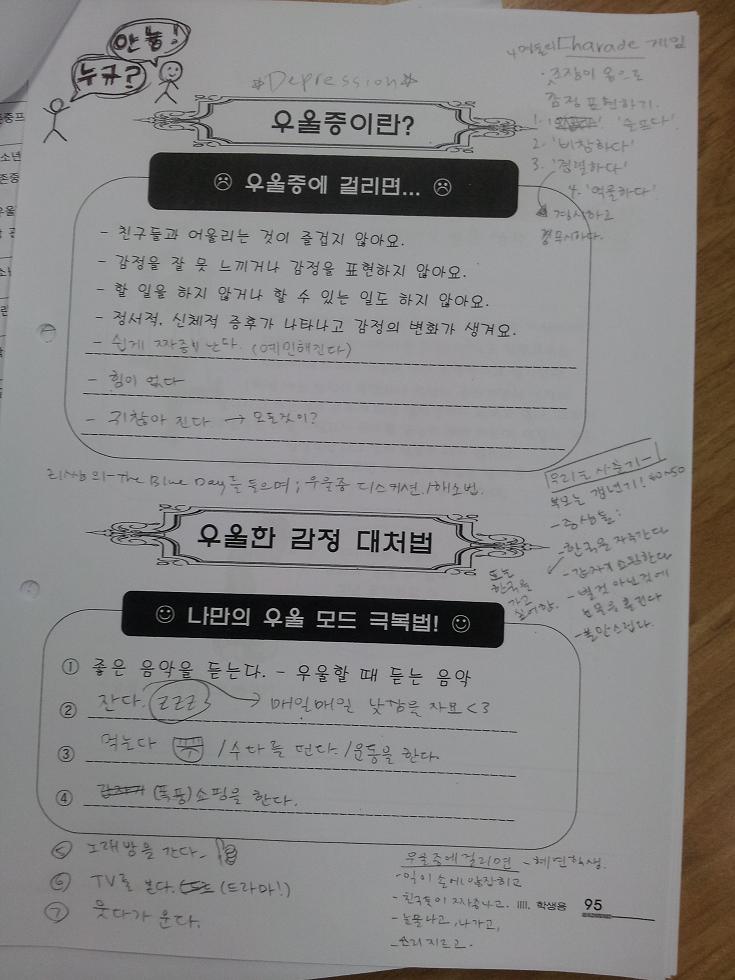 안뇽!
누규?
*Depression*
Charade 게임
조장이 몸으로
감정 표현하기.
1. '슬프다'
2. '비참하다'
3. '경멸하다'
4. '억울하다'
경시하고
무시하다.
우울증이란?
우울증에 걸리면...
- 친구들과 어울리는 것이 즐겁지 않아요.
- 감정을 잘 못 느끼거나 감정을 표현하지 않아요.
- 할 일을 하지 않거나 할 수 있는 일도 하지 않아요.
- 정서적, 신체적 증후가 나타나고 감정의 변화가 생겨요.
- 쉽게 짜증이 난다. (예민해진다)
- 힘이 없다
- 귀찮아 진다 → 모든것이?
The Blue Day를 들으며; 우울증 디스커션/해소법.
우리는 사춘기-!
부모는 갱년기! 40~50
- 증상들:
- 한국을 자주간다
또는 한국을 가고 싶어함.
- 갑자기 쇼핑한다
- 별것 아닌것에
눈물을 흘린다
- 불안스럽다.
우울한 감정 대처법
나만의 우울 모드 극복법!
① 좋은 음악을 듣는다. - 우울할 때 듣는 음악
② 잔다. ZZZ → 매일매일 낮잠을 자료 <3
③ 먹는다 /수다를 떤다. /운동을 한다.
④ (폭풍)쇼핑을 한다.
⑤ 노래방을 간다.
⑥ TV를 본다. (드라마!)
⑦ 웃다가 운다.
우울증에걸리면 - 혜연학생.
- 일이 손에 안잡히고
- 친구들이 짜증나고.
- 눈물나고, 나가고,
- 소리 지르고.
IIII. 학생용 95